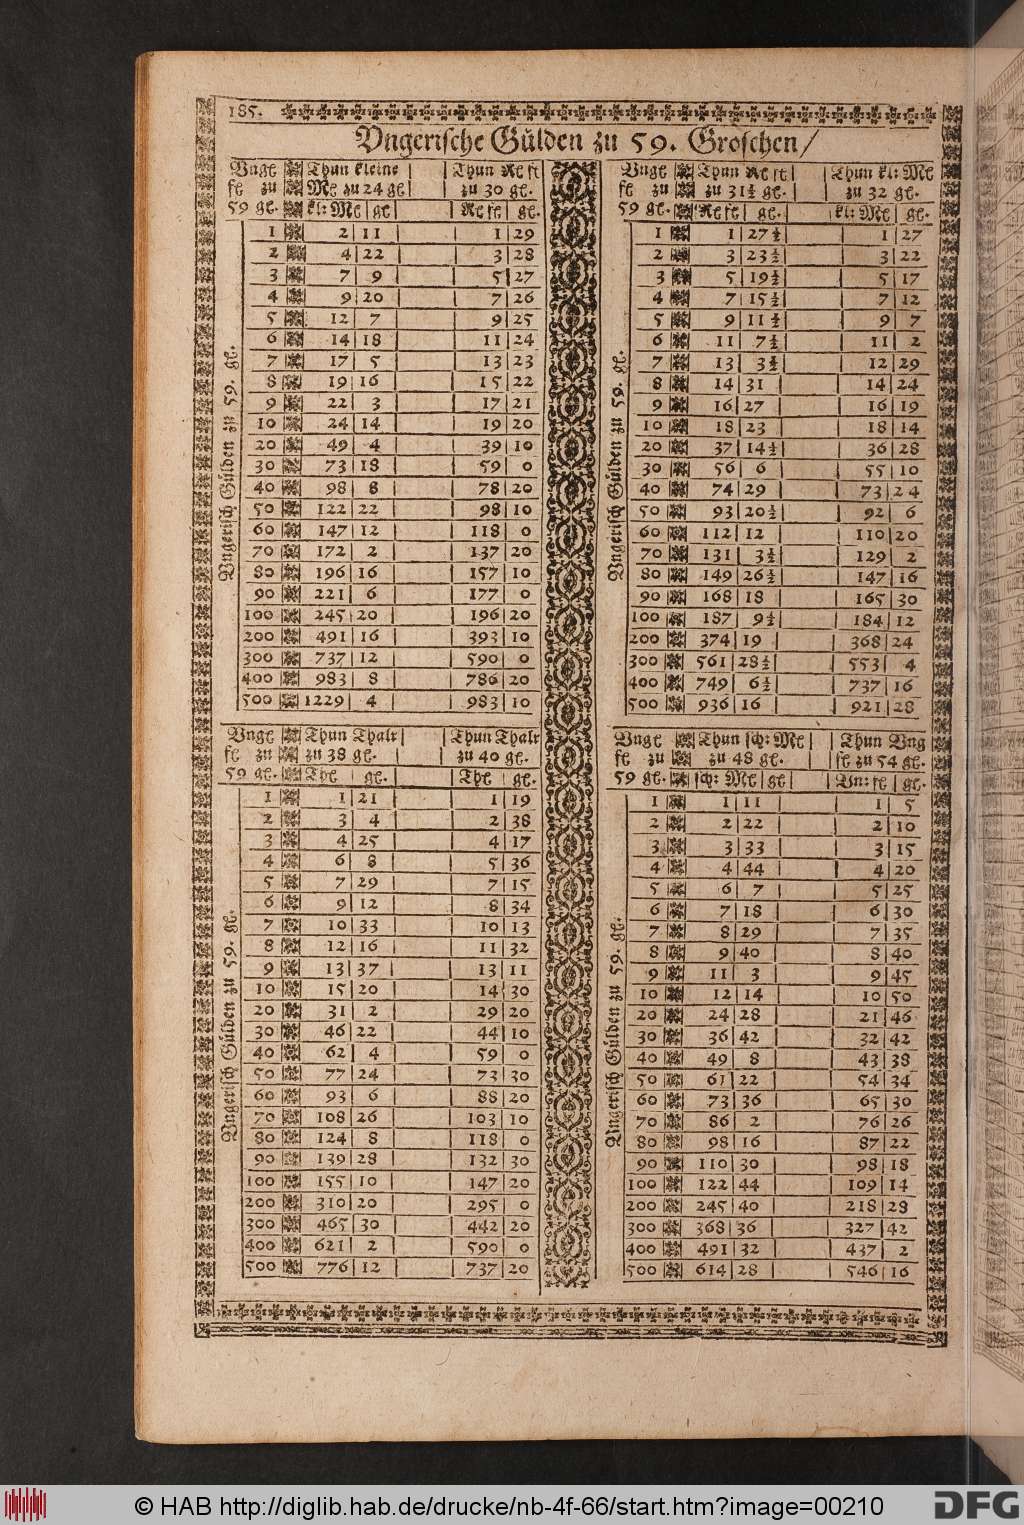 185.
Vngerische Gülden zu 59. Groschen/
Vnge Thun kleine Thun Re fl
fl zu Mß zu 24 gl zu 30 gl.
59 gl. kl: Mß gl Re fl gl.
1 2 11 1 29
2 4 22 3 28
3 7 9 5 27
4 9 20 7 26
5 12 7 9 25
6 14 18 11 24
7 17 5 13 23
8 19 16 15 22
9 22 3 17 21
10 24 14 19 20
20 49 4 39 10
30 73 18 59 0
40 98 8 78 20
50 122 22 98 10
60 147 12 118 0
70 172 2 137 20
80 196 16 157 10
90 221 6 177 0
100 245 20 196 20
200 491 16 393 10
300 737 12 590 0
400 983 8 786 20
500 1229 4 983 10
Vngerisch Gülden zu 59. gl.
Vnge Thun Re fl Thun kl: Mß
fl zu zu 31½ gl. zu 32 gl.
59 gl. Re fl gl. kl: Mß gl.
1 1 27½ 1 27
2 3 23½ 3 22
3 5 19½ 5 17
4 7 15½ 7 12
5 9 11½ 9 7
6 11 7½ 11 2
7 13 3½ 12 29
8 14 31 14 24
9 16 27 16 19
10 18 23 18 14
20 37 14½ 36 28
30 56 6 55 10
40 74 29 73 24
50 93 20½ 92 6
60 112 12 110 20
70 131 3½ 129 2
80 149 26½ 147 16
90 168 18 165 30
100 187 9½ 184 12
200 374 19 368 24
300 561 28½ 553 4
400 749 6½ 737 16
500 936 16 921 28
Vngerisch Gülden zu 59. gl.
Vnge Thun Thalr Thun Thalr
fl zu zu 38 gl. zu 40 gl.
59 gl. Thl gl. Thl gl.
1 1 21 1 19
2 3 4 2 38
3 4 25 4 17
4 6 8 5 36
5 7 29 7 15
6 9 12 8 34
7 10 33 10 13
8 12 16 11 32
9 13 37 13 11
10 15 20 14 30
20 31 2 29 20
30 46 22 44 10
40 62 4 59 0
50 77 24 73 30
60 93 6 88 20
70 108 26 103 10
80 124 8 118 0
90 139 28 132 30
100 155 10 147 20
200 310 20 295 0
300 465 30 442 20
400 621 2 590 0
500 776 12 737 20
Vngerisch Gülden zu 59. gl.
Vnge Thun sch: Mß Thun Vng
fl zu zu 48 gl. fl zu 54 gl.
59 gl. sch: Mß gl Vn: fl gl.
1 1 11 1 5
2 2 22 2 10
3 3 33 3 15
4 4 44 4 20
5 6 7 5 25
6 7 18 6 30
7 8 29 7 35
8 9 40 8 40
9 11 3 9 45
10 12 14 10 50
20 24 28 21 46
30 36 42 32 42
40 49 8 43 38
50 61 22 54 34
60 73 36 65 30
70 86 2 76 26
80 98 16 87 22
90 110 30 98 18
100 122 44 109 14
200 245 40 218 28
300 368 36 327 42
400 491 32 437 2
500 614 28 546 16
Vngerisch Gülden zu 59. gl.
© HAB http://diglib.hab.de/drucke/nb-4f-66/start.htm?image=00210
DFG